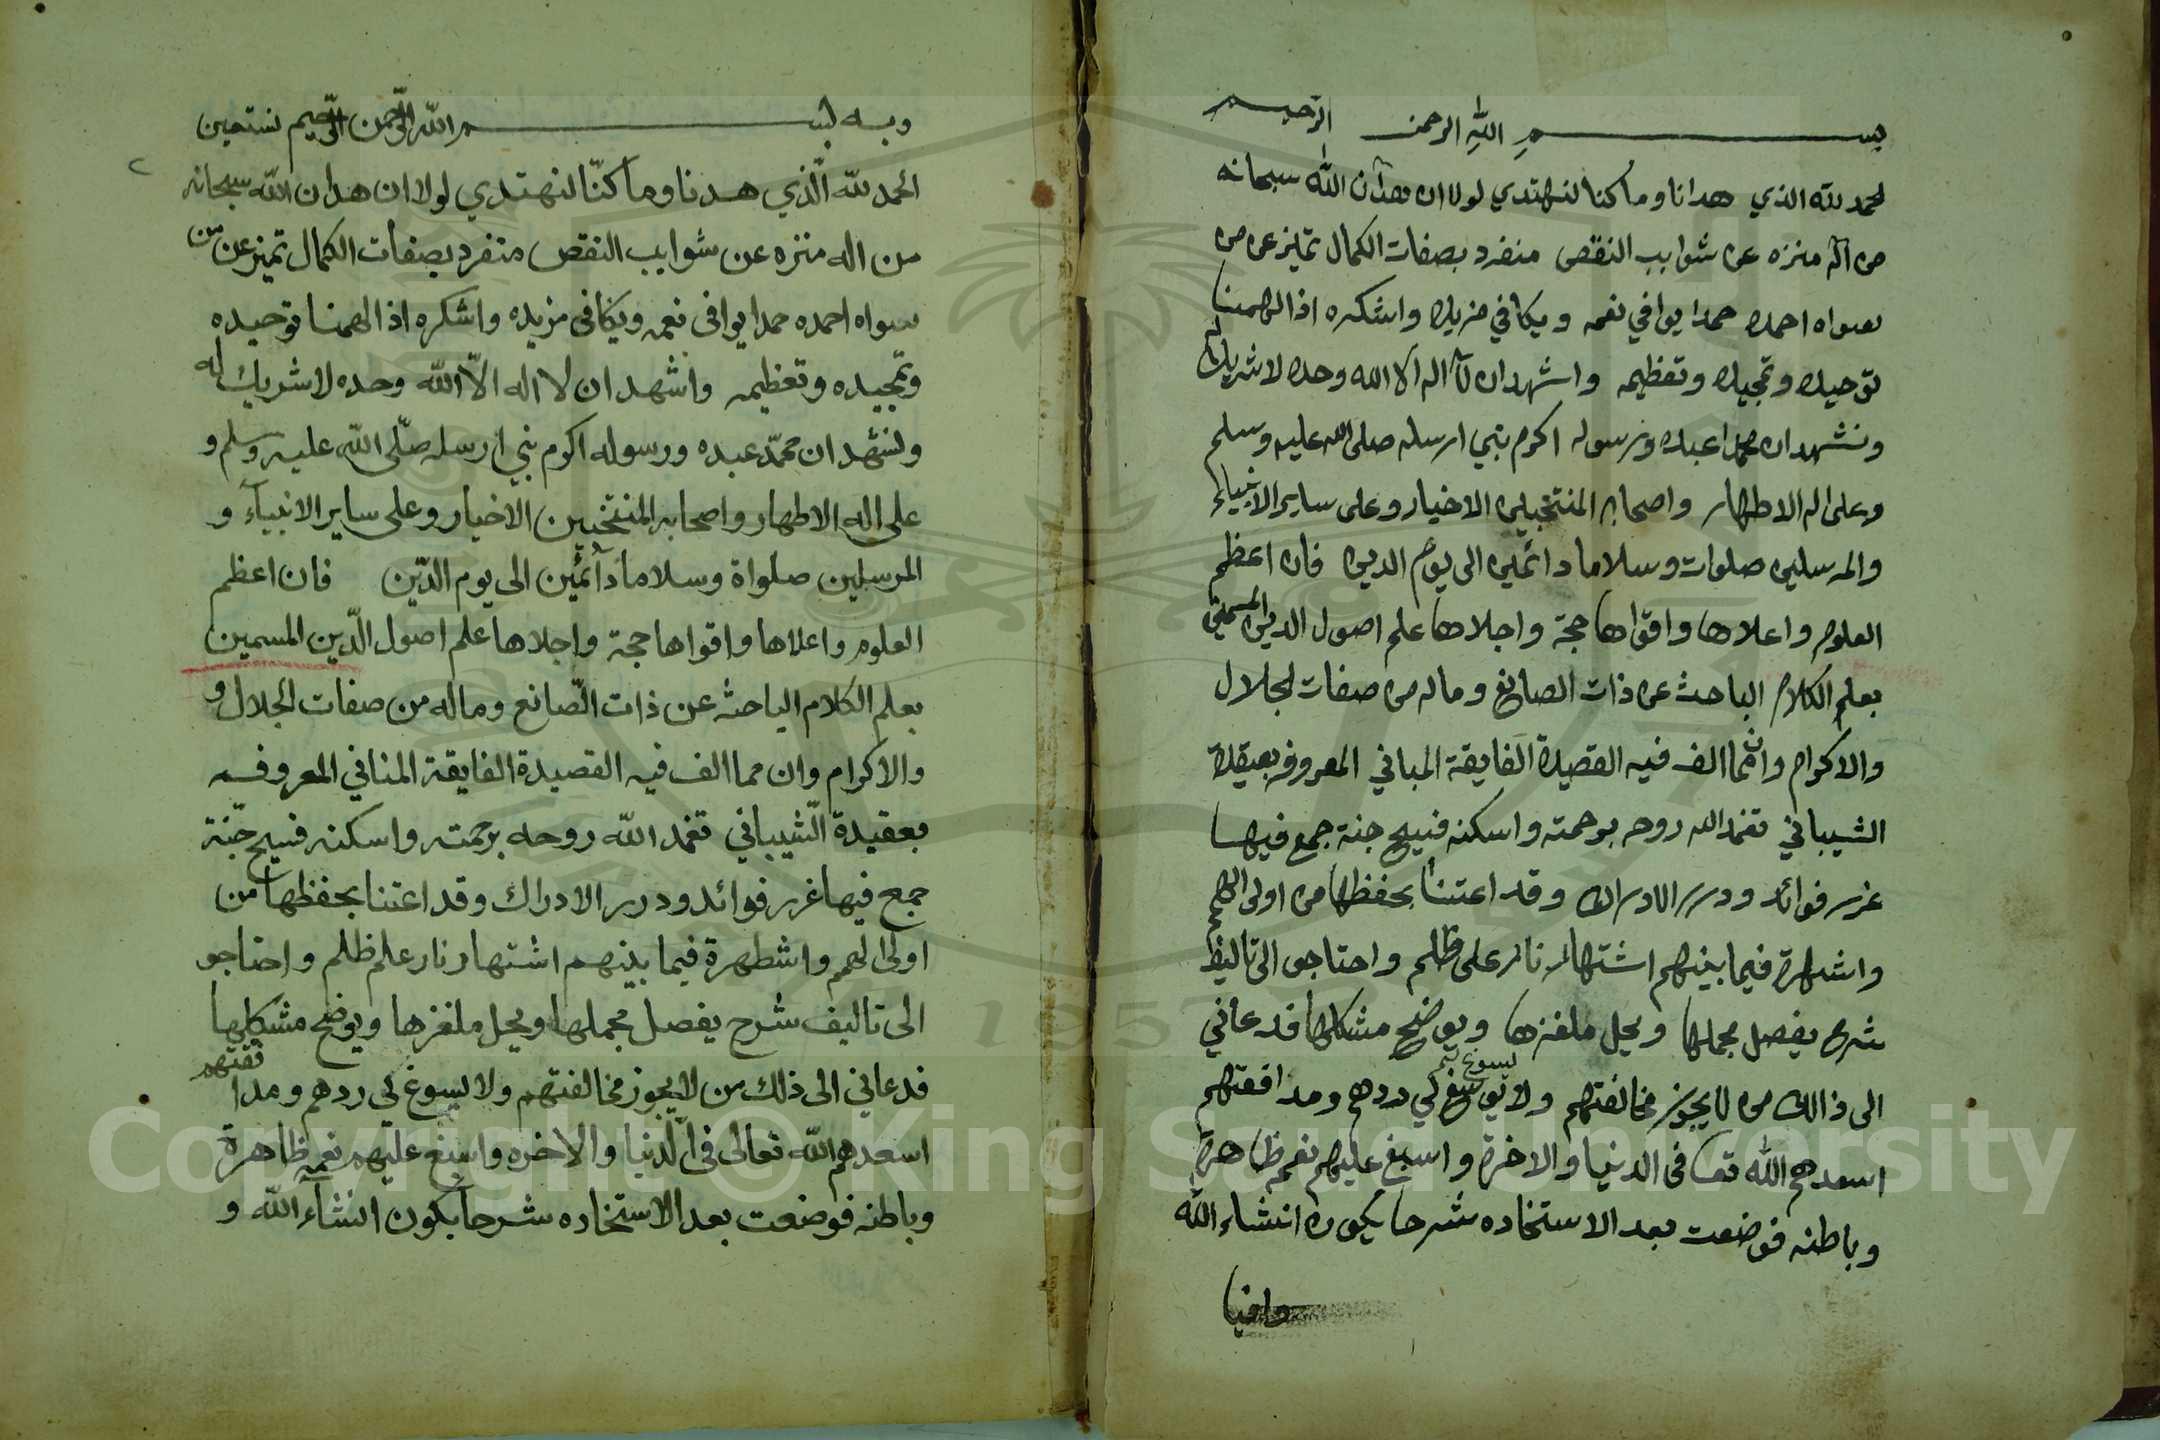 بسم الله الرحمن الرحيم
لحمد لله الذي هدانا وما كنا لنهتدي لولا ان هدان الله سبحانه
من اله منزه عن شوايب النقص منفرد بصفات الكمال تميز عن من
سواه احمده حمدا يوافي نعمه ويكافي مزيده واشكره اذ الهمنا
توحيده وتمجيده وتعظيمه واشهد ان لا اله الا الله وحده لا شريك له
ونشهد ان محمدا عبده ورسوله اكرم نبي ارسله صلى الله عليه وسلم
وعلى اله الاطهار واصحابه المنتخبين الاخيار وعلى ساير الانبياء
والمرسلين صلوات وسلاما دائمين الى يوم الدين فان اعظم
العلوم واعلاها واقواها حجة واجلاها علم اصول الدين المسمين
بعلم الكلام الباحث عن ذات الصانع وماله من صفات لجلال
والاكرام وان مما الف فيه القصيدة الفايقة المباني المعروفه بعقيدة
الشيباني تغمد الله روحه برحمته واسكنه فسيح جنة جمع فيها
غرر فوائد ودرر الادراك وقد اعتنا بحفظها من اولى الهمم
واشهرة فيما بينهم اشتهار نار على ظلم واحتاجو الى تاليف
شرح يفصل مجملها ويحل ملغزها ويوضح مشكلها فدعاني
الى ذالك من لا يجوز مخالفتهم ولا يسوغ لي ردهم ومدافعتهم
اسعدهم الله تعا فى الدنيا والاخرة واسبغ عليهم نعمه ظاهرة
وباطنه فوضعت بعد الاستخاده شرحا يكون انشاء الله
وافيا
وبه بسم الله الرحمن الرحيم نستعين
٢
الحمد لله الذي هدنا وما كنّا لنهتدي لولا ان هدان الله سبحانه
من اله منزه عن شوايب النقص متفرد بصفات الكمال تميز عن من
سواه احمده حمدا يوافى نعمه ويكافى مزيده واشكره اذ الهمنا توحيده
وتمجيده وتعظيمه واشهد ان لا اله الّا الله وحده لا شريك له
ونشهد ان محمّد عبده ورسوله اكرم نبي ارسله صلّى الله عليه وسلم و
على اله الاطهار واصحابه المنتخبين الاخيار وعلى ساير الانبيآء و
المرسلين صلواة وسلاما دآئمين الى يوم الدّين فان اعظم
العلوم واعلاها واقواها حجة واجلاها علم اصول الدّين المسمين
بعلم الكلام الباحثه عن ذات الصّانع وماله من صفات الجلال و
والاكرام وان مما الف فيه القصيدة الفايقة المنافي المعروفه
بعقيدة الشّيباني تغمد الله روحه برحمته واسكنه فسيح جنّة
جمع فيها غرر فوائد ودرر الادراك وقد اعتنا بحفظها من
اولى الهمم واشطهرة فيما بينهم اشتهار نار علم ظلم واحتاجو
الى تاليف شرح يفصل مجملها ويحل ملغزها ويوضح مشكلها
فدعاني الى ذلك من لا يجوز مخالفتهم ولا يسوغ لي ردهم ومدا
فعتهم
اسعدهم الله تعالى فى الدنيا والاخره واسبغ عليهم نعمه ظاهرة
وباطنه فوضعت بعد الاستخاده شرحا يكون انشآء الله و
Copyright © King Saud University
1957